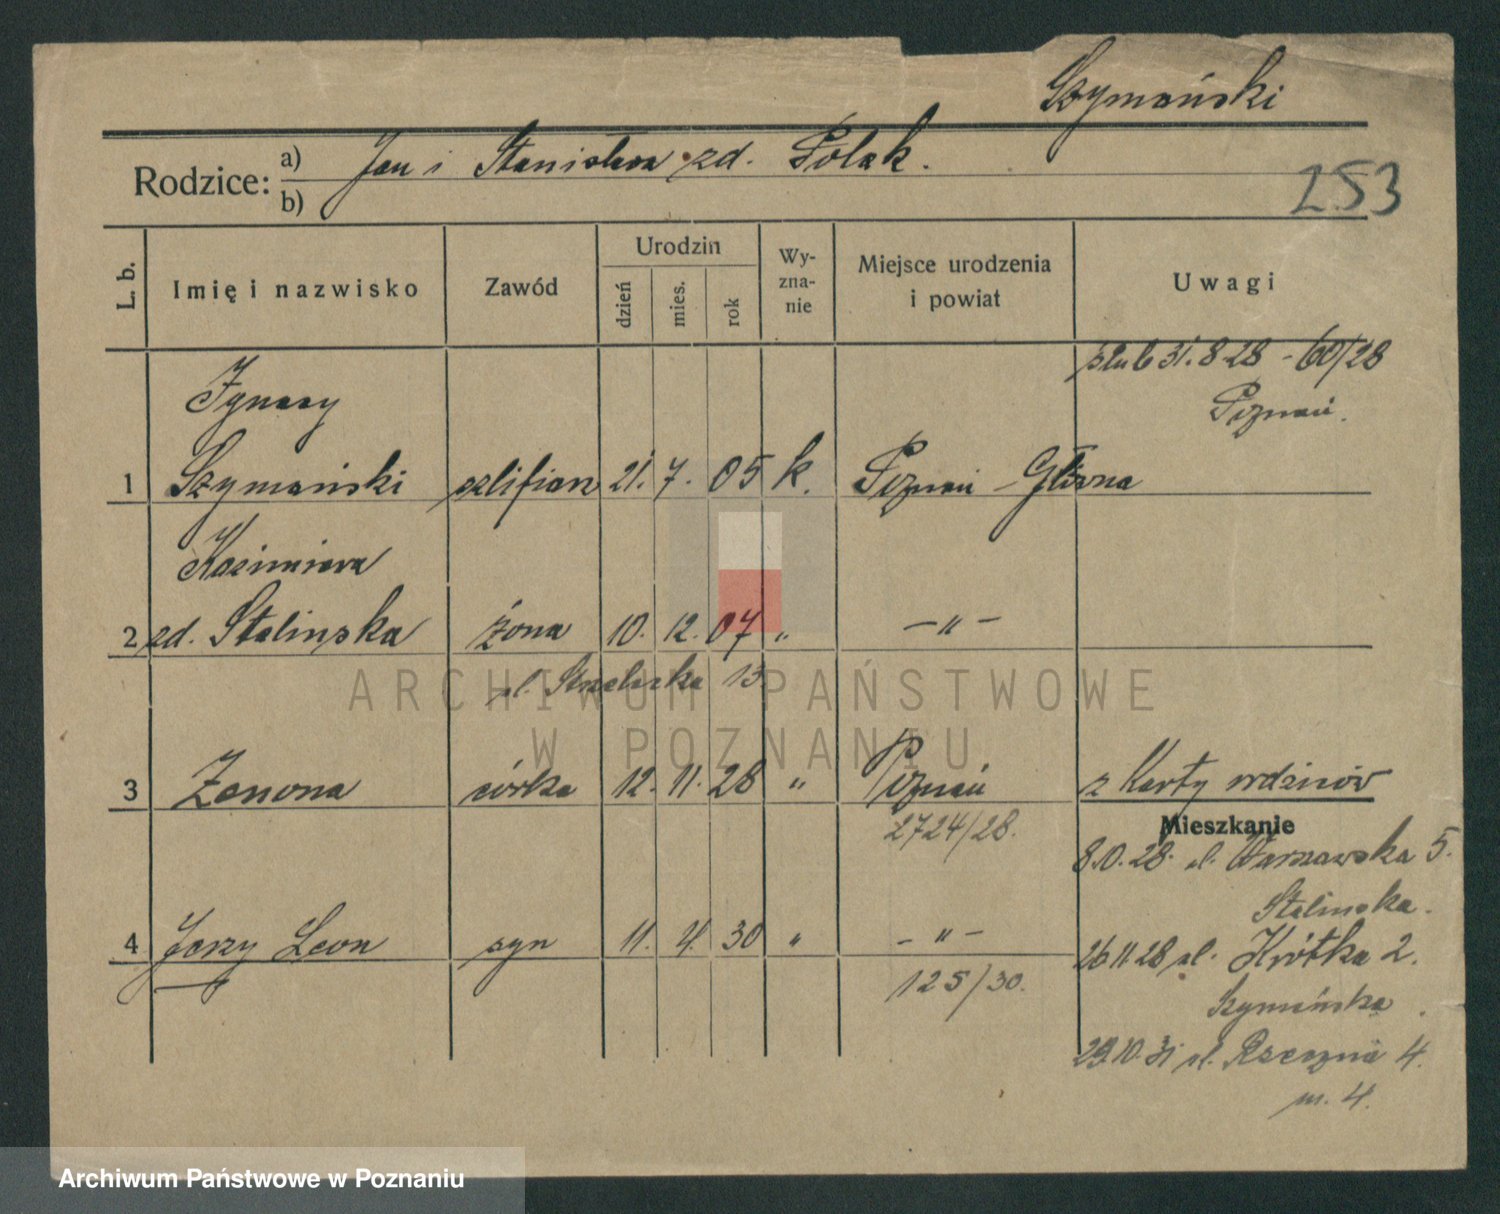 Szymański
Rodzice: a) Jan i Stanisława zd. Polak.
b)
253
L. b.
Imię i nazwisko
Zawód
Urodzin
dzień
mies.
rok
Wy-
zna-
nie
Miejsce urodzenia
i powiat
Uwagi
ślub 31.8.28 - 60/28
Poznań.
Ignacy
1 Szymański szlifierz 21. 7. 05 k. Poznań - Główna
Kazimiera
2 zd. Stalinska żona 10. 12. 07 " - " -
ul. Strzelecka 13
3 Zenona córka 12. 11. 28 " Poznań z Karty rodziców
2724/28.
Mieszkanie
8.10.28. ul. Warszawska 5.
Stalinska.
4 Jerzy Leon syn 11. 4. 30 " - " -
26.11.28 ul. Krótka 2.
125/30.
Szymańska.
29.10.31 ul. Rzeczna 4.
m. 4.
ARCHIWUM PAŃSTWOWE
W POZNANIU
Archiwum Państwowe w Poznaniu